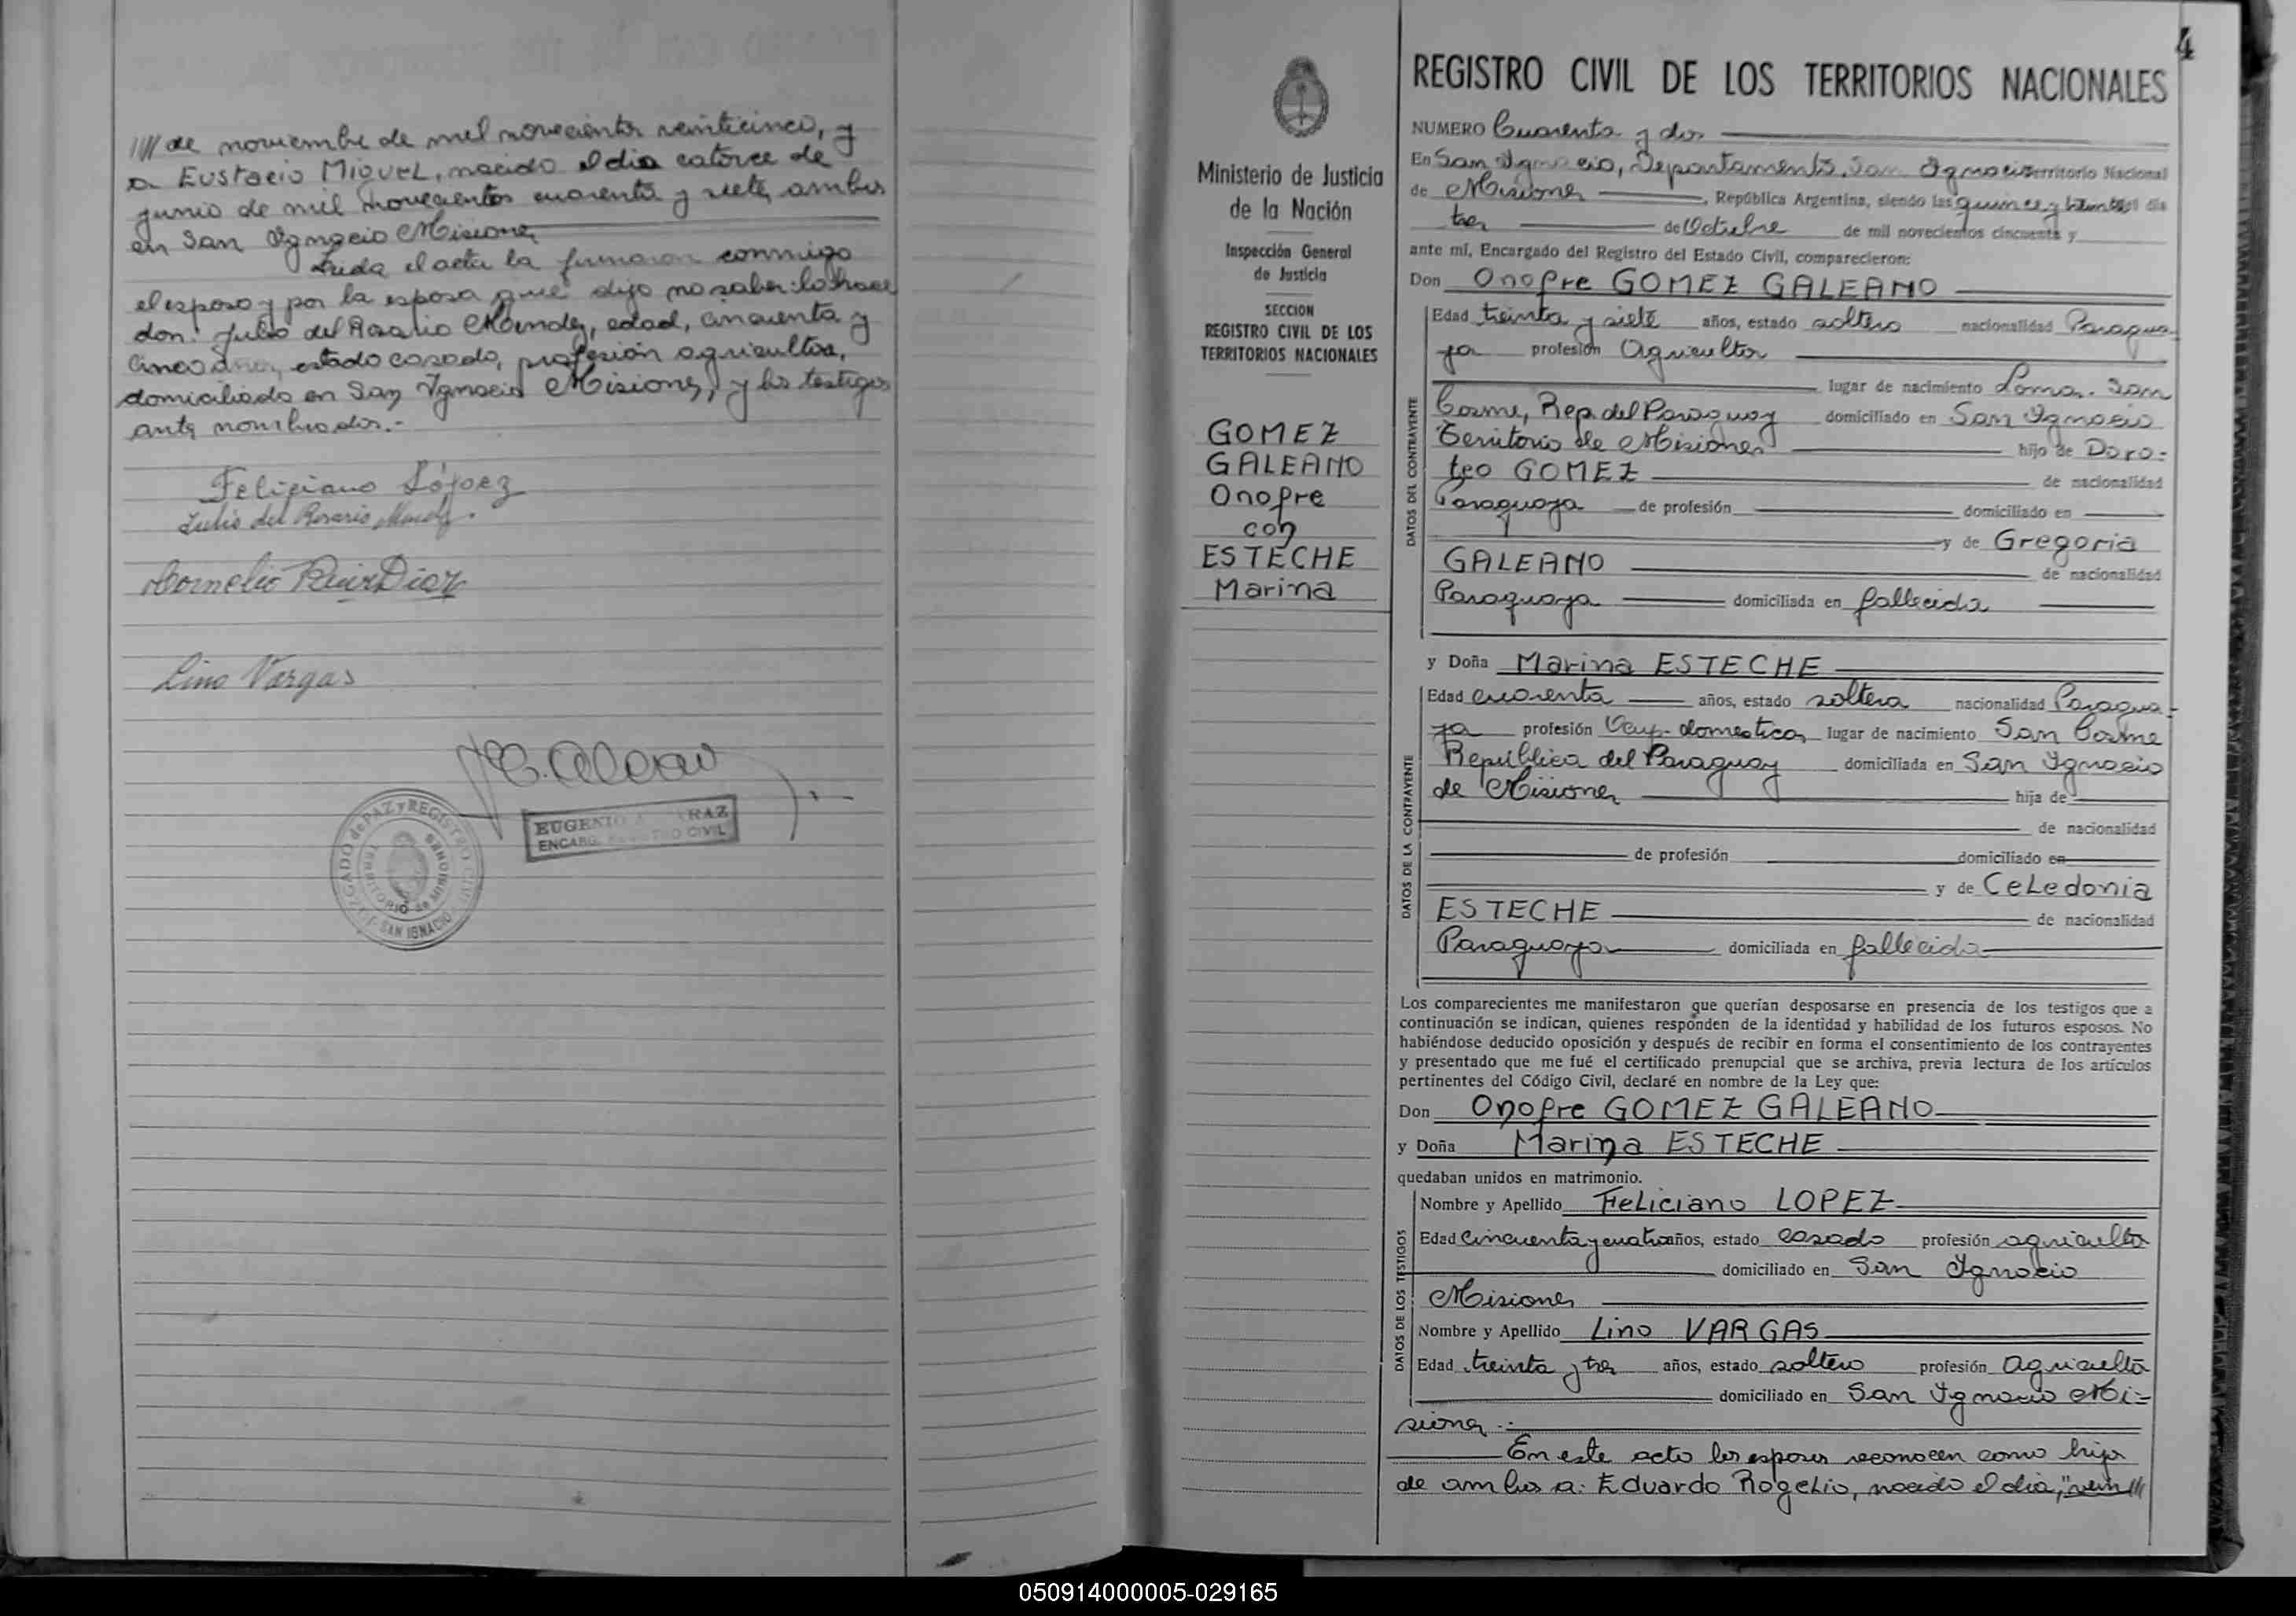 //// de noviembre de mil novecientos veinticinco, y
a Eustacio Miguel, nacido el dia catorce de
junio de mil novecientos cuarenta y siete, ambos
en San Ignacio Misiones
Leida el acta la firmaron conmigo
el esposo y por la esposa que dijo no saber lo hace
don: Julio del Rosario Mendez, edad, cincuenta y
cinco años, estado casado, profesión agricultor,
domiciliado en San Ignacio Misiones, y los testigos
antes nombrados.-
Feliciano López
Julio del Rosario Mendez.
Cornelio Ruiz Diaz
Lino Vargas
EUGENIO RAZ
ENCARG. REGISTRO CIVIL
JUZGADO de PAZ y REGISTRO CIVIL
TERRITORIO de MISIONES
SAN IGNACIO
4
Ministerio de Justicia
de la Nación
Inspección General
de Justicia
SECCION
REGISTRO CIVIL DE LOS
TERRITORIOS NACIONALES
GOMEZ
GALEANO
Onofre
con
ESTECHE
Marina
REGISTRO CIVIL DE LOS TERRITORIOS NACIONALES
NUMERO Cuarenta y dos
En San Ignacio, Departamento San Ignacio Territorio Nacional
de Misiones, República Argentina, siendo las quince y treinta del día
tres de Octubre de mil novecientos cincuenta y
ante mí, Encargado del Registro del Estado Civil, comparecieron:
Don Onofre GOMEZ GALEANO
DATOS DEL CONTRAYENTE
Edad treinta y siete años, estado soltero nacionalidad Paragua-
ya profesión Agricultor
lugar de nacimiento Loma. San
Cosme, Rep. del Paraguay domiciliado en San Ignacio
Territorio de Misiones hijo de Doro=
teo GOMEZ de nacionalidad
Paraguaya de profesión domiciliado en
y de Gregoria
GALEANO de nacionalidad
Paraguaya domiciliada en fallecida
y Doña Marina ESTECHE
DATOS DE LA CONTRAYENTE
Edad cuarenta años, estado soltera nacionalidad Paragua-
ya profesión Ocup. domesticas lugar de nacimiento San Cosme
República del Paraguay domiciliada en San Ignacio
de Misiones hija de
de nacionalidad
de profesión domiciliado en
y de Celedonia
ESTECHE de nacionalidad
Paraguaya domiciliada en fallecida
Los comparecientes me manifestaron que querían desposarse en presencia de los testigos que a
continuación se indican, quienes responden de la identidad y habilidad de los futuros esposos. No
habiéndose deducido oposición y después de recibir en forma el consentimiento de los contrayentes
y presentado que me fué el certificado prenupcial que se archiva, previa lectura de los artículos
pertinentes del Código Civil, declaré en nombre de la Ley que:
Don Onofre GOMEZ GALEANO
y Doña Marina ESTECHE
quedaban unidos en matrimonio.
DATOS DE LOS TESTIGOS
Nombre y Apellido Feliciano LOPEZ
Edad cincuenta y cuatro años, estado casado profesión agricultor
domiciliado en San Ignacio
Misiones
Nombre y Apellido Lino VARGAS
Edad treinta y tres años, estado soltero profesión agricultor
domiciliado en San Ignacio Mi=
siones.-
En este acto los esposos reconocen como hijos
de ambos a: Eduardo Rogelio, nacido el dia,
050914000005-029165